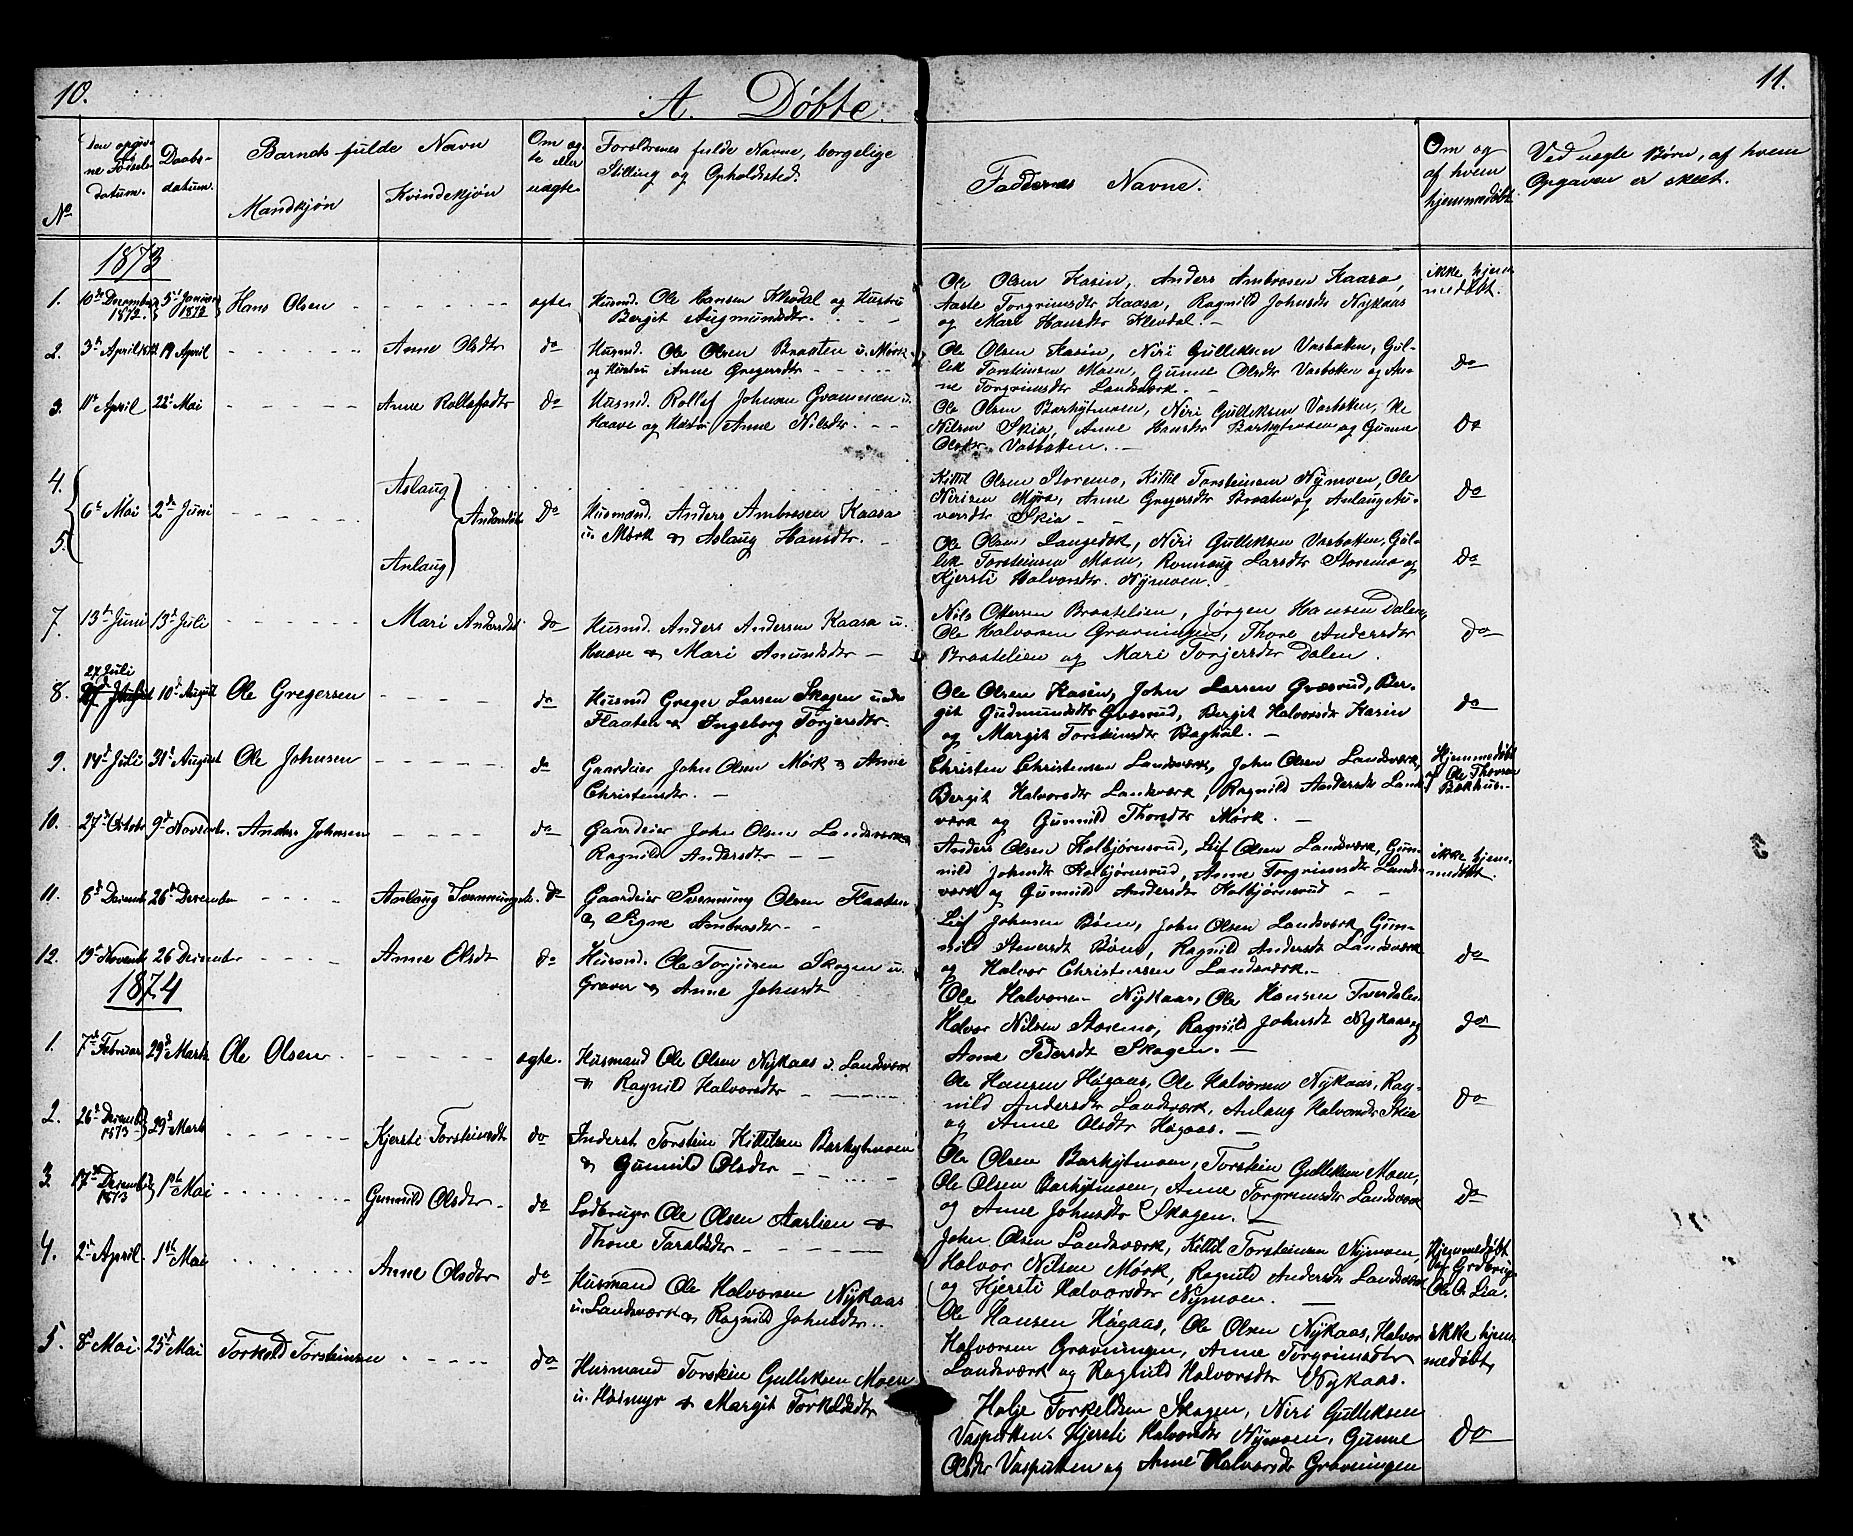 10.
A. Döbte.
11.
No
Den opgivne Fødselsdatum.
Daabsdatum.
Barnets fulde Navn
Mandkjøn
Kvindekjön
Om ægte eller uægte
Forældrenes fulde Navne, borgelige Stilling og Opholdssted.
Faddernes Navne.
Om og af hvem hjemmedøbt
Ved uægte Börn, af hvem Opgaven er skeet.
1873
1. 10de December 1872. 5te Januar Hans Olsen ægte Husmd. Ole Hansen Klevdal og Hustru
Bergit Augmundsdtr.
Ole Olsen Kasin, Anders Ambrosen Kaasa,
Aaste Torgrimsdtr Kaasa, Ragnild Johnsdtr Nykaas
og Mari Hansdtr Klevdal.
ikke hjemmedøbt.
2. 3die April 19 April Anne Olsdtr do Husmd. Ole Olsen Braaten u. Mørk
og Hustru Anne Gregersdtr
Ole Olsen Kasin, Niri Gulliksen Vasbøtten, Gullik
Torsteinsen Moen, Gunne Olsdtr Vasbøtten og Anne
Torgrimsdtr Landsværk.
do
3. 11te April 22de Mai Anne Rollefsdtr do Husmd. Rollef Johnsen
Haave og Hustru Anne Nilsdtr.
Ole Olsen Barhytmoen, Niri Gulliksen Vasbøtten, Ole
Nilsen Skia, Anne Hansdtr Barhytmoen og Gunne
Olsdtr Vasbøtten.
Do
4.
5.
6te Mai 2den Juni
Aslaug
Anlaug
Andersdtr Do Husmand. Anders Ambrosen Kaasa
u. Mørk & Aslaug Hansdtr.
Kittil Olsen Storemo, Kittil Torsteinsen Nymoen, Ole
Nirisen Myra, Anne Gregersdtr Braaten og Anlaug
Skia
Do
Ole Olsen Langedok, Niri Gulliksen Vasbøtten, Gullik
Torsteinsen Moen, Rønnaug Larsdtr Storemo og
Kjersti Halvorsdtr. Nymoen.
Do
7. 13de Juni 13de Juli Mari Andersdtr do Husmd. Anders Andersen Kaasa u.
Haave & Mari Amundsdtr
Nils Ottersen Braatelien, Jørgen Hansen Dalen,
Ole Halvorsen Gravningen, Thore Andersdtr
Braatelien og Mari Torjersdtr Dalen.
do
27 Juli
8. 10de August Ole Gregersen do Husmd Greger Larsen Skogen under
Flaaten & Ingeborg Torjersdtr.
Ole Olsen Kasin, John Larsen Gvæsrud, Bergit
Gudmundsdtr Gvæsrud, Bergit Halvorsdtr Kasin
og Margit Torsteinsdtr Baghul.
do
9. 14de Juli 31te August Ole Johnsen do Gaardeier John Olsen Mørk & Anne
Christensdtr.
Christen Christensen Landsværk, John Olsen Landsværk,
Bergit Halvorsdtr Landsværk, Ragnild Andersdtr Landsværk
og Gunnild Thorsdtr Mørk.
Hjemmedøbt
af Ole Thorsen
Bakhus
10. 27de Octobr 9de Novembr. Anders Johnsen do Gaardeier John Olsen Landsværk &
Ragnild Andersdtr
Anders Olsen Kolbjørnsrud, Leif Olsen Landsværk, Gunnild
Johnsdtr Kolbjørnsrud, Anne Torgrimsdtr Landsværk
og Gunnild Andersdtr Kolbjørnsrud
ikke hjemmedøbt.
11. 8de Decembr 26de December Anlaug Svenningsdtr. do Gaardeier Svenning Olsen Flaaten
& Signe Ambrosdtr.
Leif Johnsen Bøen, John Olsen Landsværk, Gunnild
Bøen, Ragnild Andersdtr Landsværk
og Halvor Christensen Landsværk.
do
12. 19de Novembr 26 December Anne Olsdtr do Husmd. Ole Torjusen Skogen u.
Graver & Anne Johnsdtr
Ole Halvorsen Nykaas, Ole Hansen Tverdalen
Halvor Nilsen Storemo, Ragnild Johnsdtr Nykaas og
Anne Pedersdtr Skogen.
do
1874
1. 7de Februar 29de Marts Ole Olsen ægte. Husmand Ole Olsen Nykaas u. Landsværk
& Ragnild Halvorsdtr
Ole Hansen Høgaas, Ole Halvorsen Nykaas, Ragnild
Andersdtr Landsværk, Anlaug Halvorsdtr Skia
og Anne Olsdtr Høgaas.
do
2. 26de December 1873 29de Marts Kjersti Torsteinsdtr do Inderst Torstein Kittilsen Barhytmoen
& Gunnild Olsdtr
Ole Olsen Barhytmoen, Torstein Gulliksen Moen,
Ole Olsen Barhytmoen, Anne Torgrimsdtr Landsværk
og Anne Johnsdtr Skogen.
Do
3 17de December 1873 1ste Mai Gunnild Olsdtr do Ledbruger Ole Olsen Aarlien &
Thone Taraldsdtr
John Olsen Landsværk, Kittil Torsteinsen Nymoen,
Halvor Nilsen Mørk, Ragnild Andersdtr Landsværk
og Kjersti Halvorsdtr Nymoen.
Hjemmedøbt
af Grdbrug.
Ole O. Lia.
4. 2den April 1ste Mai Anne Olsdtr do Husmand Ole Halvorsen Nykaas
u. Landsværk & Ragnild Johnsdtr.
Ole Hansen Høgaas, Ole Olsen Nykaas, Halvor
Halvorsen Gravningen, Anne Torgrimsdtr
Landsværk og Ragnild Halvorsdtr Nykaas.
ikke hjemmedøbt
5. 8de Mai 25de Mai Torkild Torsteinsen do Husmand Torstein Gulliksen Moen
u. Hasmyr & Margit Torkildsdtr
Halje Torkeldsen Skogen, Niri Gulliksen
Vasputten. Kjersti Halvorsdtr Nymoen, Gunne
Olsdtr Vasputten og Anne Halvorsdtr Gravningen
Do